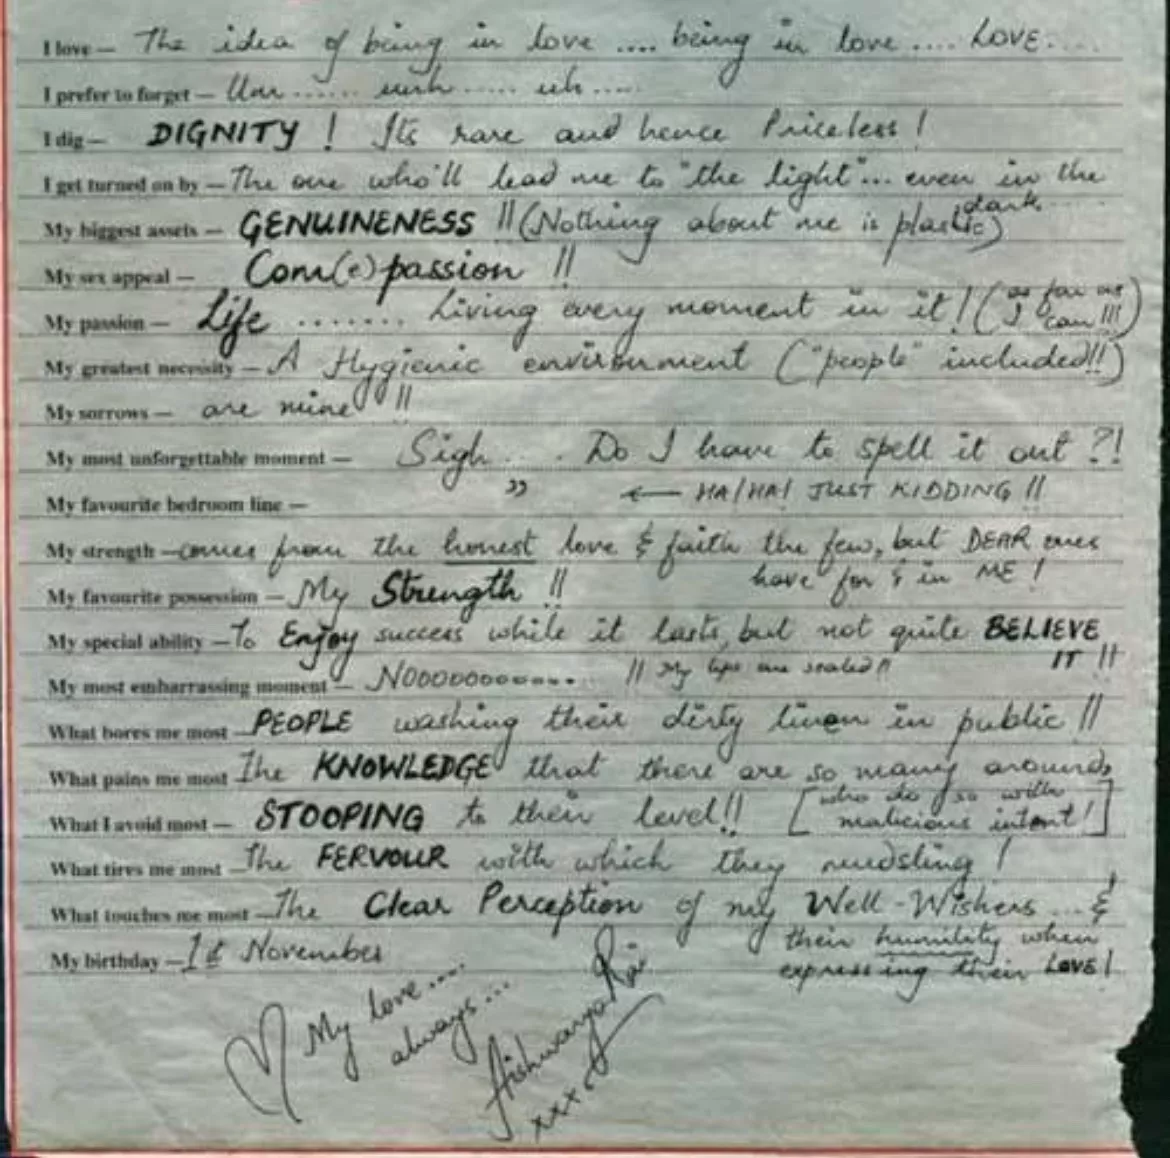 I love – The idea of being in love .... being in love .... LOVE....
I prefer to forget – Um ...... uuh ..... uh .....
I dig – DIGNITY ! Its rare and hence Priceless !
I get turned on by – The one who'll lead me to "the light"... even in the
dark
My biggest assets – GENUINENESS !! (Nothing about me is plastic)
My sex appeal – Com(e)passion !!
My passion – Life ....... Living every moment in it ! (as far as
I can !!!)
My greatest necessity – A Hygienic environment ("people" included!!)
My sorrows – are mine !!
My most unforgettable moment – Sigh ... . Do I have to spell it out ?!
My favourite bedroom line – " ← HA!HA! JUST KIDDING !!
My strength – comes from the honest love & faith the few, but DEAR ones
have for & in ME !
My favourite possession – My Strength !!
My special ability – To Enjoy success while it lasts, but not quite BELIEVE
IT !!
My most embarrassing moment – NOoooooooo.... !! My lips are sealed !!
What bores me most – PEOPLE washing their dirty linen in public !!
What pains me most The KNOWLEDGE that there are so many around,
[who do so with
malicious intent!]
What I avoid most – STOOPING to their level!!
What tires me most – The FERVOUR with which they mudsling !
What touches me most – The Clear Perception of my Well-Wishers ... &
their humility when
expressing their LOVE !
My birthday – 1st November
My love ....
always ...
Aishwarya Rai
xxx